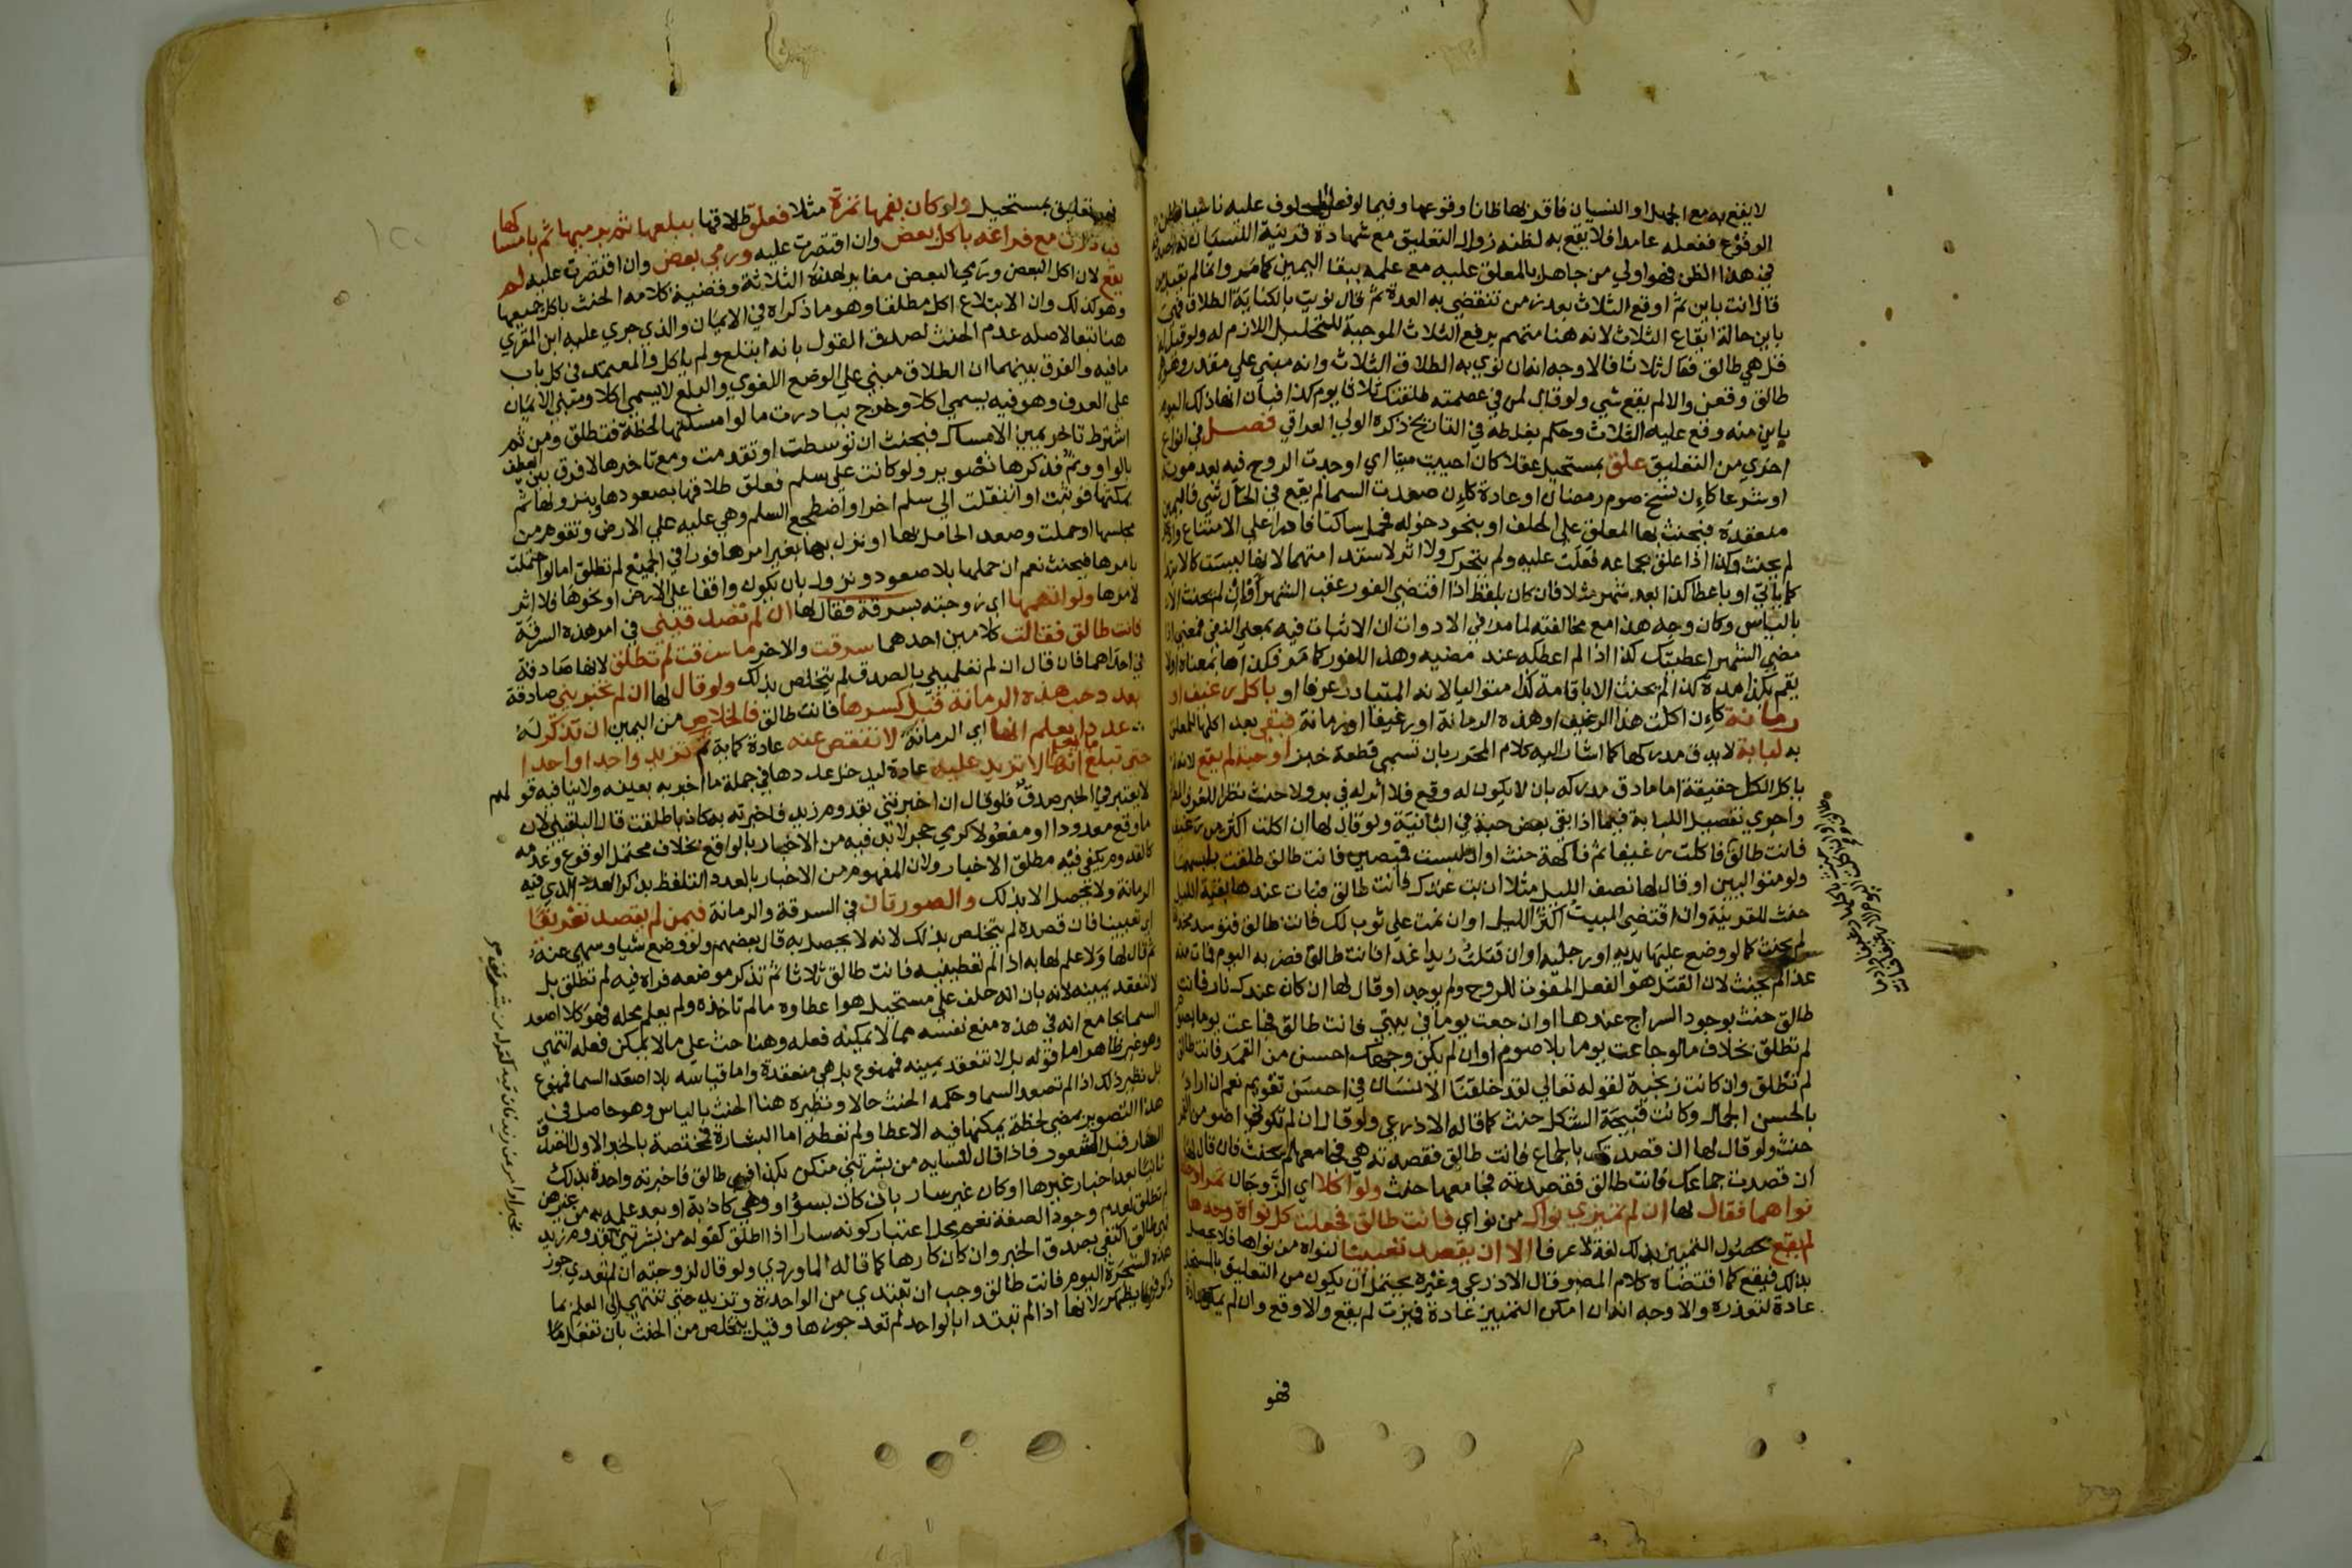 لا يقع به مع الجهل او النسيان فاقدمها ظانا وقوعها وفيما لو فعل المحلوف عليه ناسيا فظن
الوقوع ففعله عامدا فلا يقع به لظنه زوال التعليق مع شهادة قرينة النسيان له بصدقه
في هذا الظن فهو اولي من جاهل بالمعلق عليه مع علمه ببقا اليمين كما مر وانما لم يقبل من
قال انت باين ثم اوقع الثلاث بعد زمن تنقضي به العدة ثم قال نويت بالكناية الطلاق فهي
باين حالة ايقاع الثلاث لانه هنا متهم برفع الثلاث الموجبة للتحليل اللازم له ولو قيل له
قل هي طالق فقال ثلاثا فالاوجه انه ان نوي به الطلاق الثلاث وانه مبني علي مقدر وهو هي
طالق وقعن والا لم يقع شي ولو قال لمن في عصمته طلقتك ثلاثا يوم كذا فبان انها ذلك اليوم
باين منه وقع عليه الثلاث وحكم بغلطه في التاريخ ذكره الولي العراقي فصل في انواع
اخري من التعليق علق بمستحيل عقلا كان احييت ميتا اي اوجدت الروح فيه بعد موته
او شرعا كان نسخ صوم رمضان او عادة كان صعدت السما لم يقع في الحال شي فاليمين
منعقدة فيحنث بها المعلق علي الحلف او بنحو دخوله فحمل ساكتا قادرا علي الامتناع وادخل
لم يحنث وكذا اذا علق بجماعه فعلت عليه ولم يتحرك ولا اثر لاستدامتهما لانها ليست كالابتدا
كما ياتي او باعطا كذا بعد شهر مثلا فان كان بلفظ اذا اقتضي الفور عقب الشهر او ان لم يحنث الا
بالياس وكان وجه هذا مع مخالفته لما مر في الادوات ان الاثبات فيه بمعني النفي فمعني اذا
مضي الشهر اعطيتك كذا اذا لم اعطكه عند مضيه وهذا للفور كما مر فكذا ما بمعناه او لا
يقيم بكذا مدة كذا لم يحنث الا باقامة كذا متواليا لانه المتبادر عرفا او باكل رغيف او
رمانة كان اكلت هذا الرغيف او هذه الرمانة او رغيفا او رمانة فبقي بعد اكلها للمعلق
به لبابة لا يدق مدركها كما اشار اليه كلام المحرر بان تسمي قطعة خبز او حبة لم يقع لانه لم
ياكل الكل حقيقة اما ما دق مدركه بان لا يكون له وقع فلا اثر له في بر ولا حنث نظرا للعرف
واجري تفصيل اللبابة فيما اذا بقي بعض حبة في الثانية ولو قال لها ان اكلت اكثر من رغيف
فانت طالق فاكلت رغيفا ثم فاكهة حنث او ان لبست قميصين فانت طالق طلقت بلبسهما
ولو متواليين او قال لها نصف الليل مثلا ان بت عندك فانت طالق فبات عندها بقية الليل
حنث للقرينة وان اقتضي المبيت اكثر الليل او ان نمت علي ثوب لك فانت طالق فتوسد مخدتها
لم يحنث كما لو وضع عليها يديه او رجليه او ان قتلت زيدا غدا فانت طالق فضربه اليوم فمات منه
غدا لم يحنث لان القتل هو الفعل المفوت للروح ولم يوجد او قال لها ان كان عندك نار فانت
طالق حنث بوجود السراج عندها او ان جعت يوما في بيتي فانت طالق فجاعت يوما بصوم
لم تطلق بخلاف ما لو جاعت يوما بلا صوم او ان لم يكن وجهك احسن من القمر فانت طالق
لم تطلق وان كانت زنجية لقوله تعالي لقد خلقنا الانسان في احسن تقويم نعم ان اراد
بالحسن الجمال وكانت قبيحة الشكل حنث كما قاله الاذرعي ولو قال ان لم تكوني اضو من القمر
حنث ولو قال لها ان قصدتك بالجماع فانت طالق فقصدته هي فجامعها لم يحنث فان قال لها
ان قصدت جماعك فانت طالق فقصدته فجامعها حنث ولو اكلا اي الزوجان تمرا وخلطا
نواهما فقال لها ان لم تميزي نواك من نواي فانت طالق فجعلت كل نواة وحدها
لم يقع لحصول التمييز بذلك لغة لا عرفا الا ان يقصد تعيينا لنواه من نواها فلا يحصل
بذلك فيقع كما اقتضاه كلام المص وقال الاذرعي وغيره يحتمل ان يكون من التعليق بالمستحيل
عادة لتعذره والاوجه انه ان امكن التمييز عادة فميزت لم يقع والا وقع وان لم يمكن عادة
فهو
فهو تعليق بمستحيل ولو كان بفمها تمرة مثلا فعلق طلاقها ببلعها ثم برميها ثم بامساكها
فبادرت مع فراغه باكل بعض وان اقتصرت عليه ورمي بعض وان اقتصرت عليه لم
يقع لان اكل البعض ورمي البعض مغاير لهذه الثلاثة وقضية كلامه الحنث باكل جميعها
وهو كذلك وان الابتلاع اكل مطلقا وهو ما ذكراه في الايمان والذي جري عليه ابن المقري
هنا تبعا لاصله عدم الحنث لصدق القول بانه ابتلع ولم ياكل والمعتمد في كل باب
ما فيه والفرق بينهما ان الطلاق مبني علي الوضع اللغوي والبلع لا يسمي اكلا ومبني الايمان
علي العرف وهو فيه يسمي اكلا وخرج ببادرت ما لو امسكتها لحظة فتطلق ومن ثم
اشترط تاخر يمين الامساك فيحنث ان توسطت او تقدمت ومع تاخرها لا فرق بين العطف
بالواو وثم فذكرها تصوير ولو كانت علي سلم فعلق طلاقها بصعودها وبنزولها ثم
بمكثها فوثبت او انتقلت الي سلم اخر او اضطجع السلم وهي عليه علي الارض وتقوم من
مجلسها او حملت وصعد الحامل بها او نزل بها بغير امرها فورا في الجميع لم تطلق اما لو حملت
بامرها فيحنث نعم ان حملها بلا صعود ونزول بان يكون واقفا علي الارض او نحوها فلا اثر
لامرها ولو اتهمها اي زوجته بسرقة فقال لها ان لم تصدقيني في امر هذه السرقة
فانت طالق فقالت كلامين احدهما سرقت والاخر ما سرقت لم تطلق لانها صادقة
في احداهما فان قال ان لم تعلميني بالصدق لم يتخلص بذلك ولو قال لها ان لم تخبريني صادقة
بعدد حب هذه الرمانة قبل كسرها فانت طالق فالخلاص من اليمين ان تذكر له
عددا يعلم انها اي الرمانة لا تنقص عنه عادة كماية ثم تزيد واحدا واحدا
حتي تبلغ ما يعلم انها لا تزيد عليه عادة ليدخل عددها في جملة ما اخبر به بعينه ولا ينافيه قولهم
لا يعتبر في الخبر صدق فلو قال ان اخبرتني بقدوم زيد فاخبرته به كاذبا طلقت قال البلقيني لان
ما وقع معدودا او مفعولا كرمي حجر لا بد فيه من الاخبار بالواقع بخلاف محتمل الوقوع وعدمه
كالقدوم يكفي فيه مطلق الاخبار ولان المفهوم من الاخبار بالعدد التلفظ بذكر العدد الذي فيه
الرمانة ولا يحصل الا بذلك والصورتان في السرقة والرمانة فيمن لم يقصد تعريفا
اي تعيينا فان قصده لم يتخلص بذلك لانه لا يحصل به قال بعضهم ولو وضع شيا وسهي عنه
ثم قال لها ولا علم لها به اذا لم تعطينيه فانت طالق ثلاثا ثم تذكر موضعه فراه فيه لم تطلق بل
لا تنعقد يمينه لانه بان انه حلف علي مستحيل هو اعطاوه ما لم تاخذه ولم يعلم محله فهو كلا اصعد
السما بجامع انه في هذه منع نفسه مما لا يمكنه فعله وهنا حث علي ما لا يمكن فعله انتهي
وهو غير ظاهر اما قوله بل لا تنعقد يمينه فممنوع بل هي منعقدة واما قياسه بلا اصعد السما فممنوع
بل نظير ذلك اذا لم تصعد السما وحكمه الحنث حالا ونظيره هنا الحنث بالياس وهو حاصل في
هذا التصوير بمضي لحظة يمكنها فيه الاعطا ولم تعطه اما البشارة فمختصة بالخبر الاول الصدق
السار قبل الشعور فاذا قال لنسايه من بشرتني منكن بكذا فهي طالق فاخبرته واحدة بذلك
ثانيا بعد اخبار غيرها او كان غير سار بان كان بسو او وهي كاذبة او بعد علمه به من غيرهن
لم تطلق لعدم وجود الصفة نعم محل اعتبار كونه سارا اذا اطلق كقوله من بشرتني بخبر او امر عن زيد
فهي طالق اكتفي بصدق الخبر وان كان كارها كما قاله الماوردي ولو قال لزوجته ان لم تعدي جوز
هذه الشجرة اليوم فانت طالق وجب ان تبتدي من الواحدة وتزيد حتي تنتهي الي العلم بما
ذكر فيما يظهر لانها اذا لم تبتد بالواحد لم تعد جوزها وقيل يتخلص من الحنث بان تفعل ما